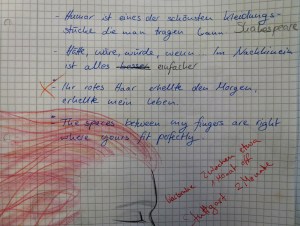 - Humor ist eines der schönsten Kleidungs-
stücke die man tragen kann Shakespeare
- Hätte, wäre, würde, wenn Im Nachhinein
ist alles besser einfacher
- Ihr rotes Haar erhellte den Morgen,
erhellte mein Leben.
* The spaces between my fingers are right
where yours fit perfectly.
zwischen
1 Monat
Stuttgart 2 Monate